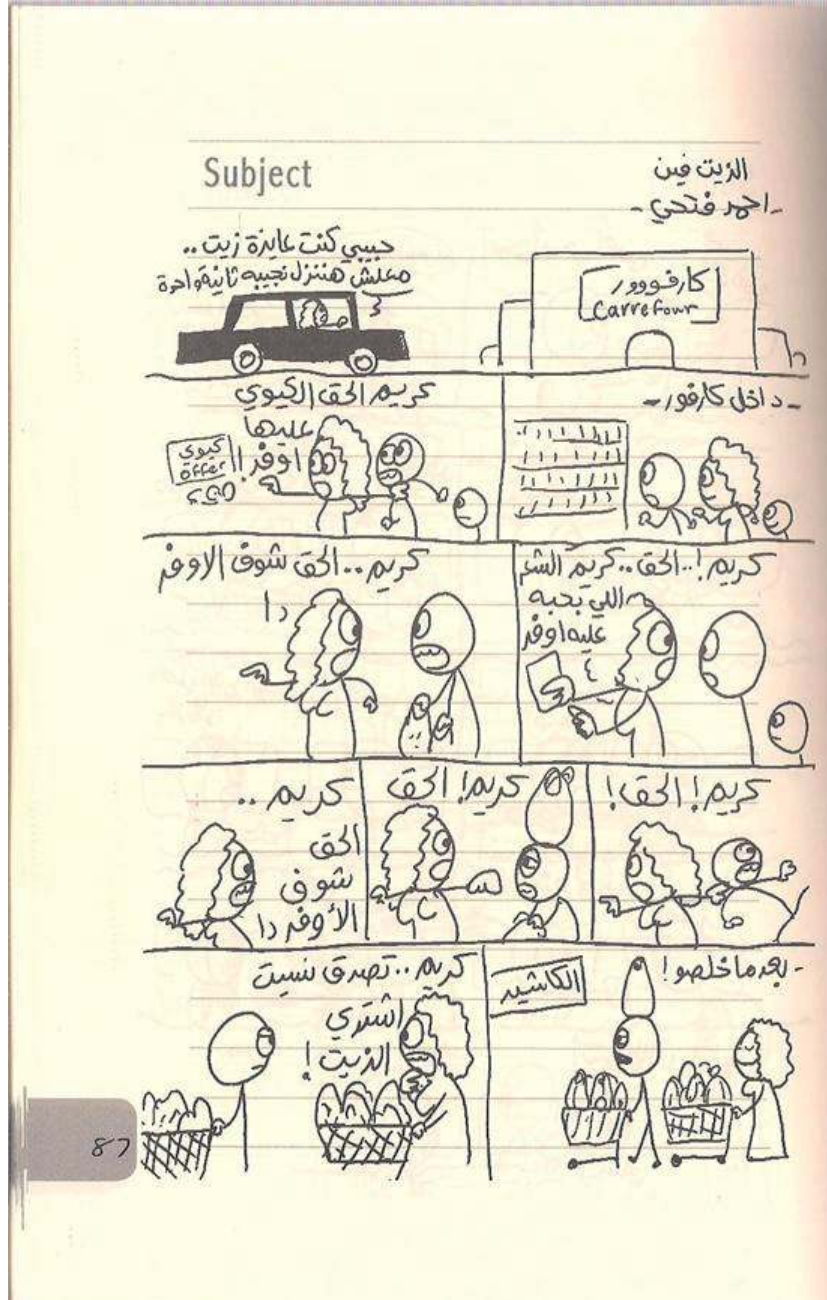 Subject
الزيت فين
- احمد فتحي -
كارفووور
Carrefour
حبيبي كنت عايزة زيت ..
معلش هننزل نجيبه ثانية واحدة
- داخل كارفور -
كريم الحق الكيوي
عليها
اوفر!
كيوي
offer
كريم!..الحق..كريم الشئ
اللي بحبه
عليه اوفر
كريم..الحق شوف الاوفر
دا
كريم! الحق!
كريم! الحق
كريم..
الحق
شوف
الأوفر دا
- بعد ما خلصو!
الكاشير
كريم..تصدق نسيت
اشتري
الزيت!
87